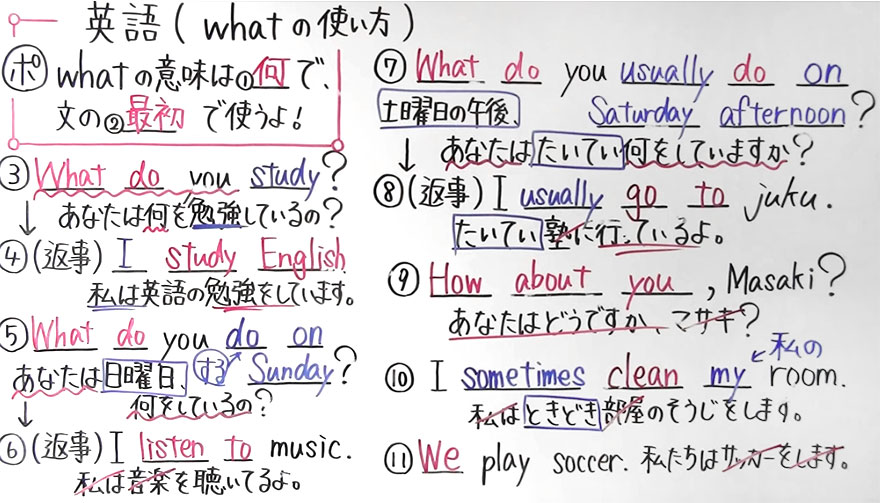 英語(whatの使い方)
ポ whatの意味は①何で、
文の②最初で使うよ!
③What do you study?
あなたは何を勉強しているの?
↓
④(返事)I study English
私は英語の勉強をしています。
⑤What do you do on
あなたは日曜日、する Sunday?
何をしているの?
↓
⑥(返事)I listen to music.
私は音楽を聴いてるよ。
⑦What do you usually do on
土曜日の午後、 Saturday afternoon?
↓ あなたはたいてい何をしていますか?
⑧(返事)I usually go to juku.
たいてい塾に行っているよ。
⑨How about you, Masaki?
あなたはどうですか、マサキ?
←私の
⑩I sometimes clean my room.
私はときどき部屋のそうじをします。
⑪We play soccer. 私たちはサッカーをします。